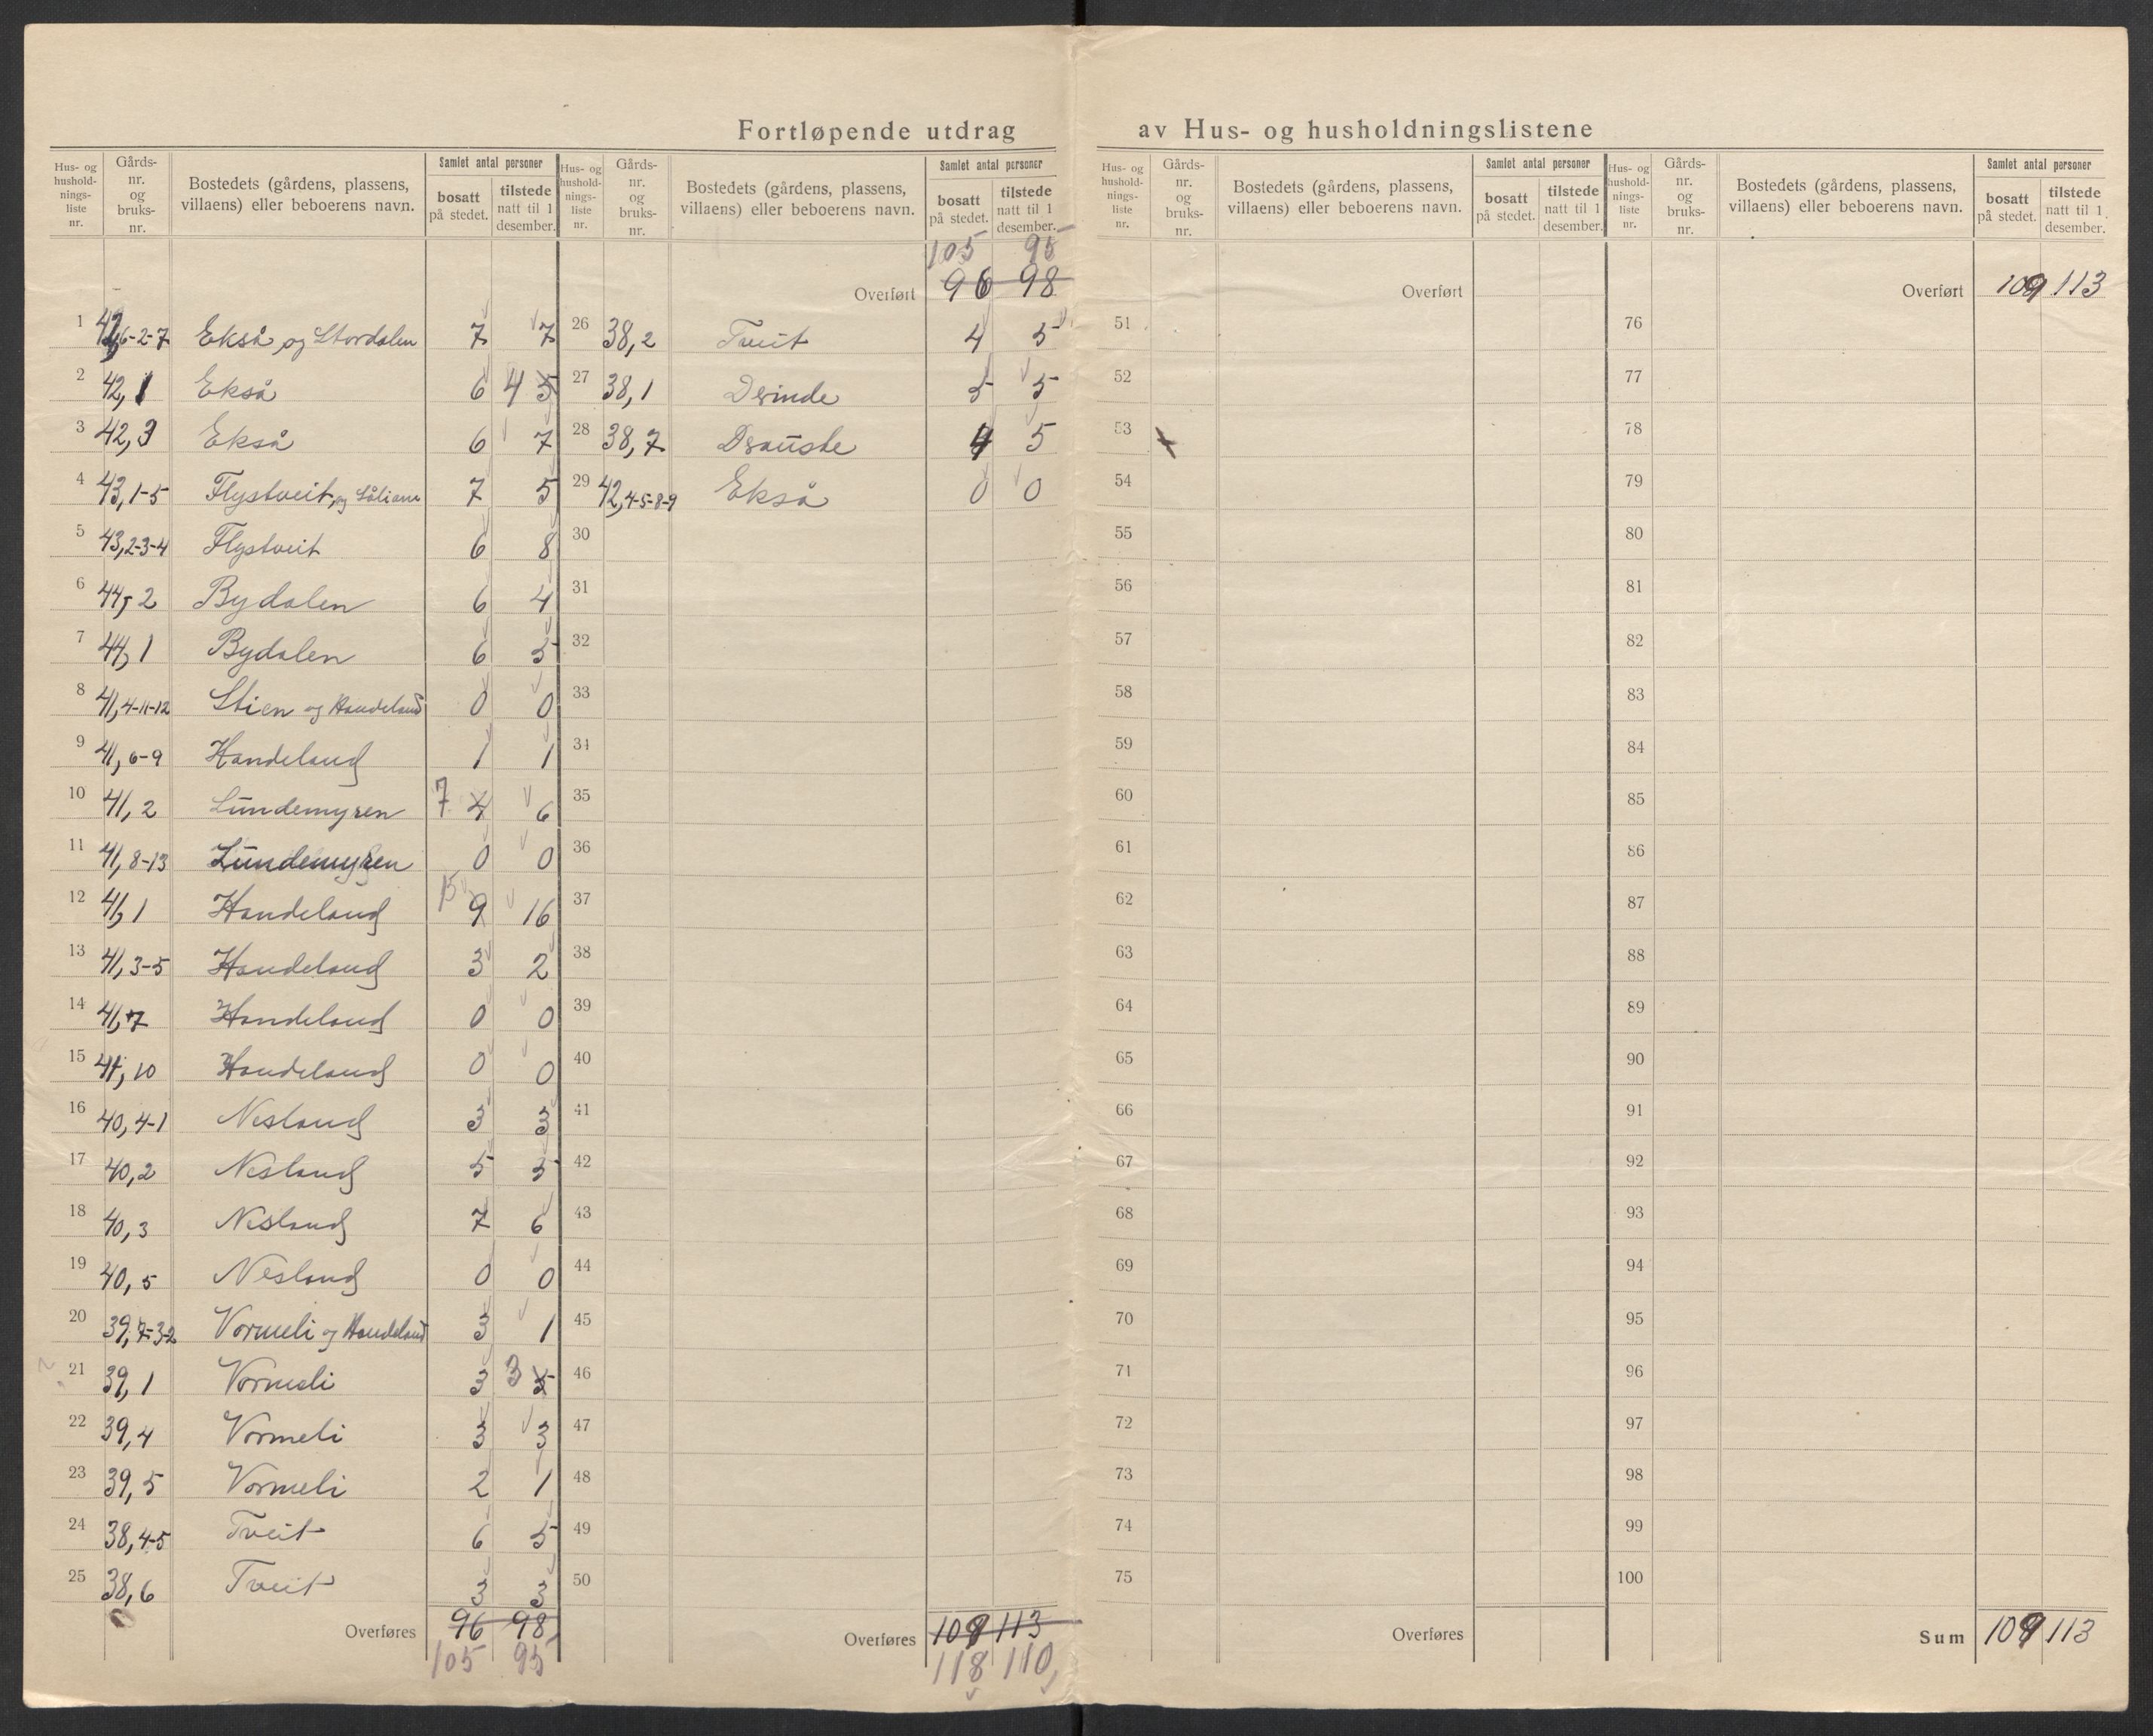 Fortløpende utdrag av Hus- og husholdningslistene
Hus- og hushold-nings-liste nr. | Gårds-nr. og bruks-nr. | Bostedets (gårdens, plassens, villaens) eller beboerens navn. | Samlet antal personer | bosatt på stedet. | tilstede natt til 1 desember.
1 42,6-2-7 Ekså og Stordalen 7 7
2 42,1 Ekså 6 4 5
3 42,3 Ekså 6 7
4 43,1-5 Flystveit og 7 5
5 43,2-3-4 Flystveit 6 8
6 44,2 Bydalen 6 4
7 44,1 Bydalen 6 5
8 41,4-11-12 Stien og Handeland 0 0
9 41,6-9 Handeland 1 1
10 41,2 Lundemyren 7 4 6
11 41,8-13 Lundemyren 0 0
12 41,1 Handeland 15 9 16
13 41,3-5 Handeland 3 2
14 41,7 Handeland 0 0
15 41,10 Handeland 0 0
16 40,4-1 Nesland 3 3
17 40,2 Nesland 5 5
18 40,3 Nesland 7 6
19 40,5 Nesland 0 0
20 39,7-3-2 Vormeli og Handeland 3 1
21 39,1 Vormeli 3 3 5
22 39,4 Vormeli 3 3
23 39,5 Vormeli 2 1
24 38,4-5 Tveit 6 5
25 38,6 Tveit 3 3
Overføres 96 98
105 95
Hus- og hushold-nings-liste nr. | Gårds-nr. og bruks-nr. | Bostedets (gårdens, plassens, villaens) eller beboerens navn. | Samlet antal personer | bosatt på stedet. | tilstede natt til 1 desember.
105 95
Overført 96 98
26 38,2 Tveit 4 5
27 38,1 5 5
28 38,7 4 5
29 42,4-5-8-9 Ekså 0 0
30
31
32
33
34
35
36
37
38
39
40
41
42
43
44
45
46
47
48
49
50
Overføres 109 113
118 110
Hus- og hushold-nings-liste nr. | Gårds-nr. og bruks-nr. | Bostedets (gårdens, plassens, villaens) eller beboerens navn. | Samlet antal personer | bosatt på stedet. | tilstede natt til 1 desember.
Overført
51
52
53
54
55
56
57
58
59
60
61
62
63
64
65
66
67
68
69
70
71
72
73
74
75
Overføres
Hus- og hushold-nings-liste nr. | Gårds-nr. og bruks-nr. | Bostedets (gårdens, plassens, villaens) eller beboerens navn. | Samlet antal personer | bosatt på stedet. | tilstede natt til 1. desember.
Overført 109 113
76
77
78
79
80
81
82
83
84
85
86
87
88
89
90
91
92
93
94
95
96
97
98
99
100
Sum 109 113